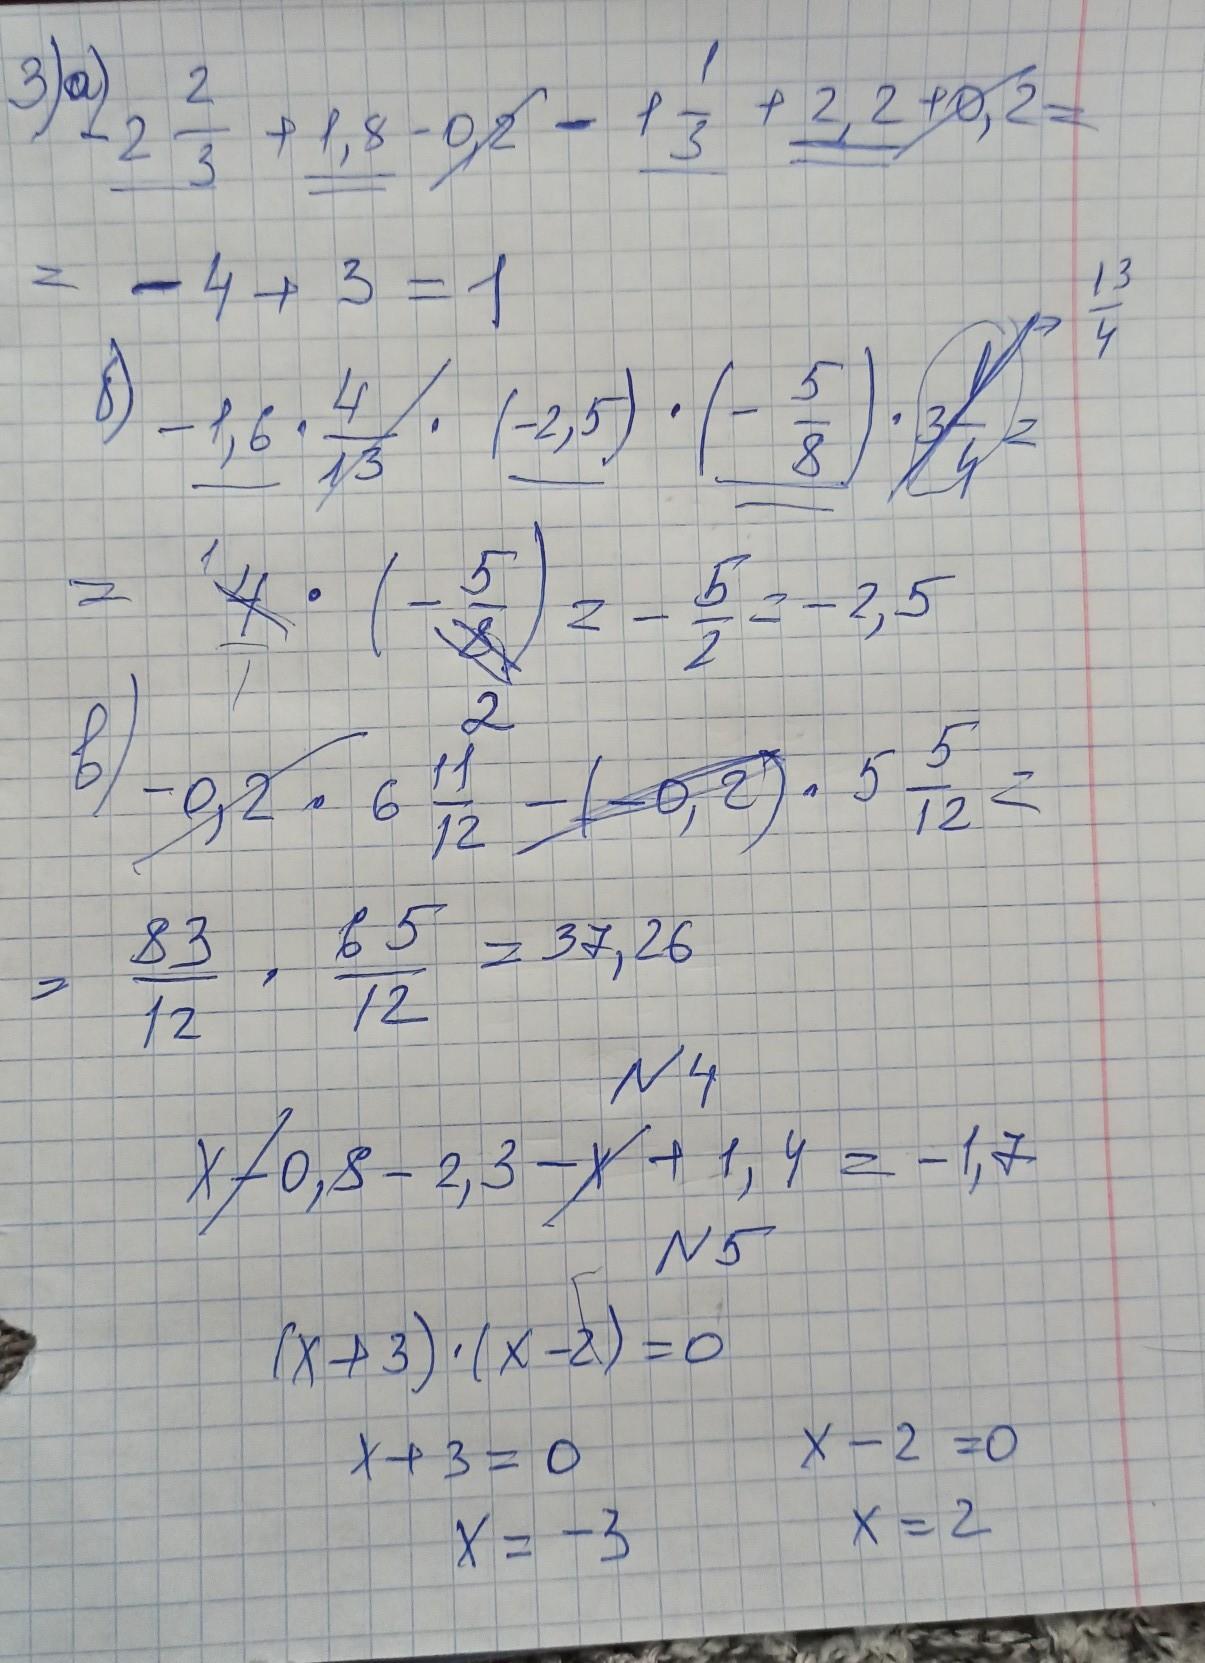 3) а) -2 2/3 + 1,8 - 0,2 - 1 1/3 + 2,2 + 0,2 =
= - 4 + 3 = 1
13/4
б) -1,6 · 4/13 · (-2,5) · (- 5/8) · 3 1/4 =
= 4/1 · (- 5/8) = - 5/2 = -2,5
1 2
в) -0,2 · 6 11/12 - (-0,2) · 5 5/12 =
= 83/12 · 65/12 = 37,26
N4
x - 0,8 - 2,3 - x + 1,4 = -1,7
N5
(x + 3) · (x - 2) = 0
x + 3 = 0 x - 2 = 0
x = -3 x = 2